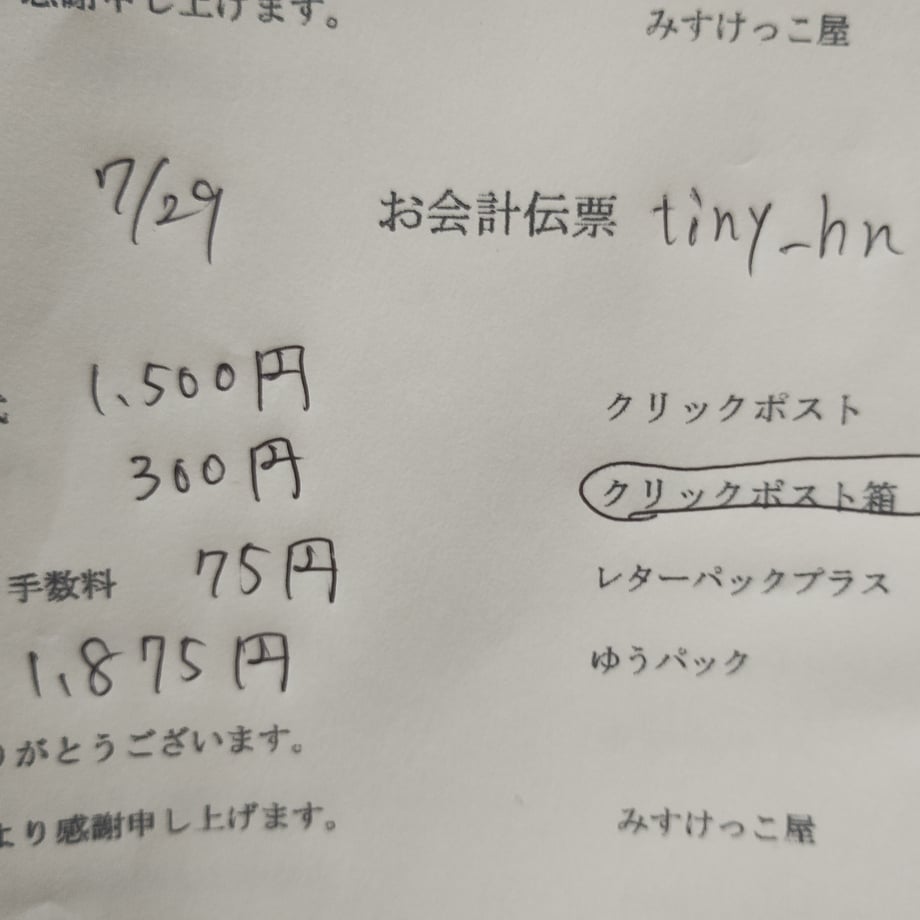 感謝申し上げます。 みすけっこ屋
7/29 お会計伝票 tiny_hn
1,500円 クリックポスト
300円 クリックポスト箱
手数料 75円 レターパックプラス
1,875円 ゆうパック
がとうございます。
より感謝申し上げます。 みすけっこ屋